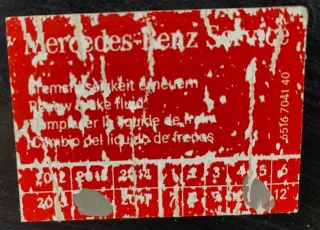 Mercedes-Benz Service
Bremsflüssigkeit erneuern
Renew brake fluid
Remplacer le liquide de frein
Cambio del líquido de frenos
6516 704 140
2012 2013 2014 1 2 3 4 5 6
2015 2017 7 8 9 12